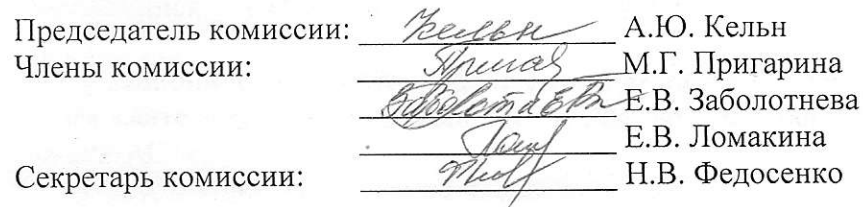 Председатель комиссии: Кельн А.Ю. Кельн
Члены комиссии: М.Г. Пригарина
Е.В. Заболотнева
Е.В. Ломакина
Секретарь комиссии: Н.В. Федосенко